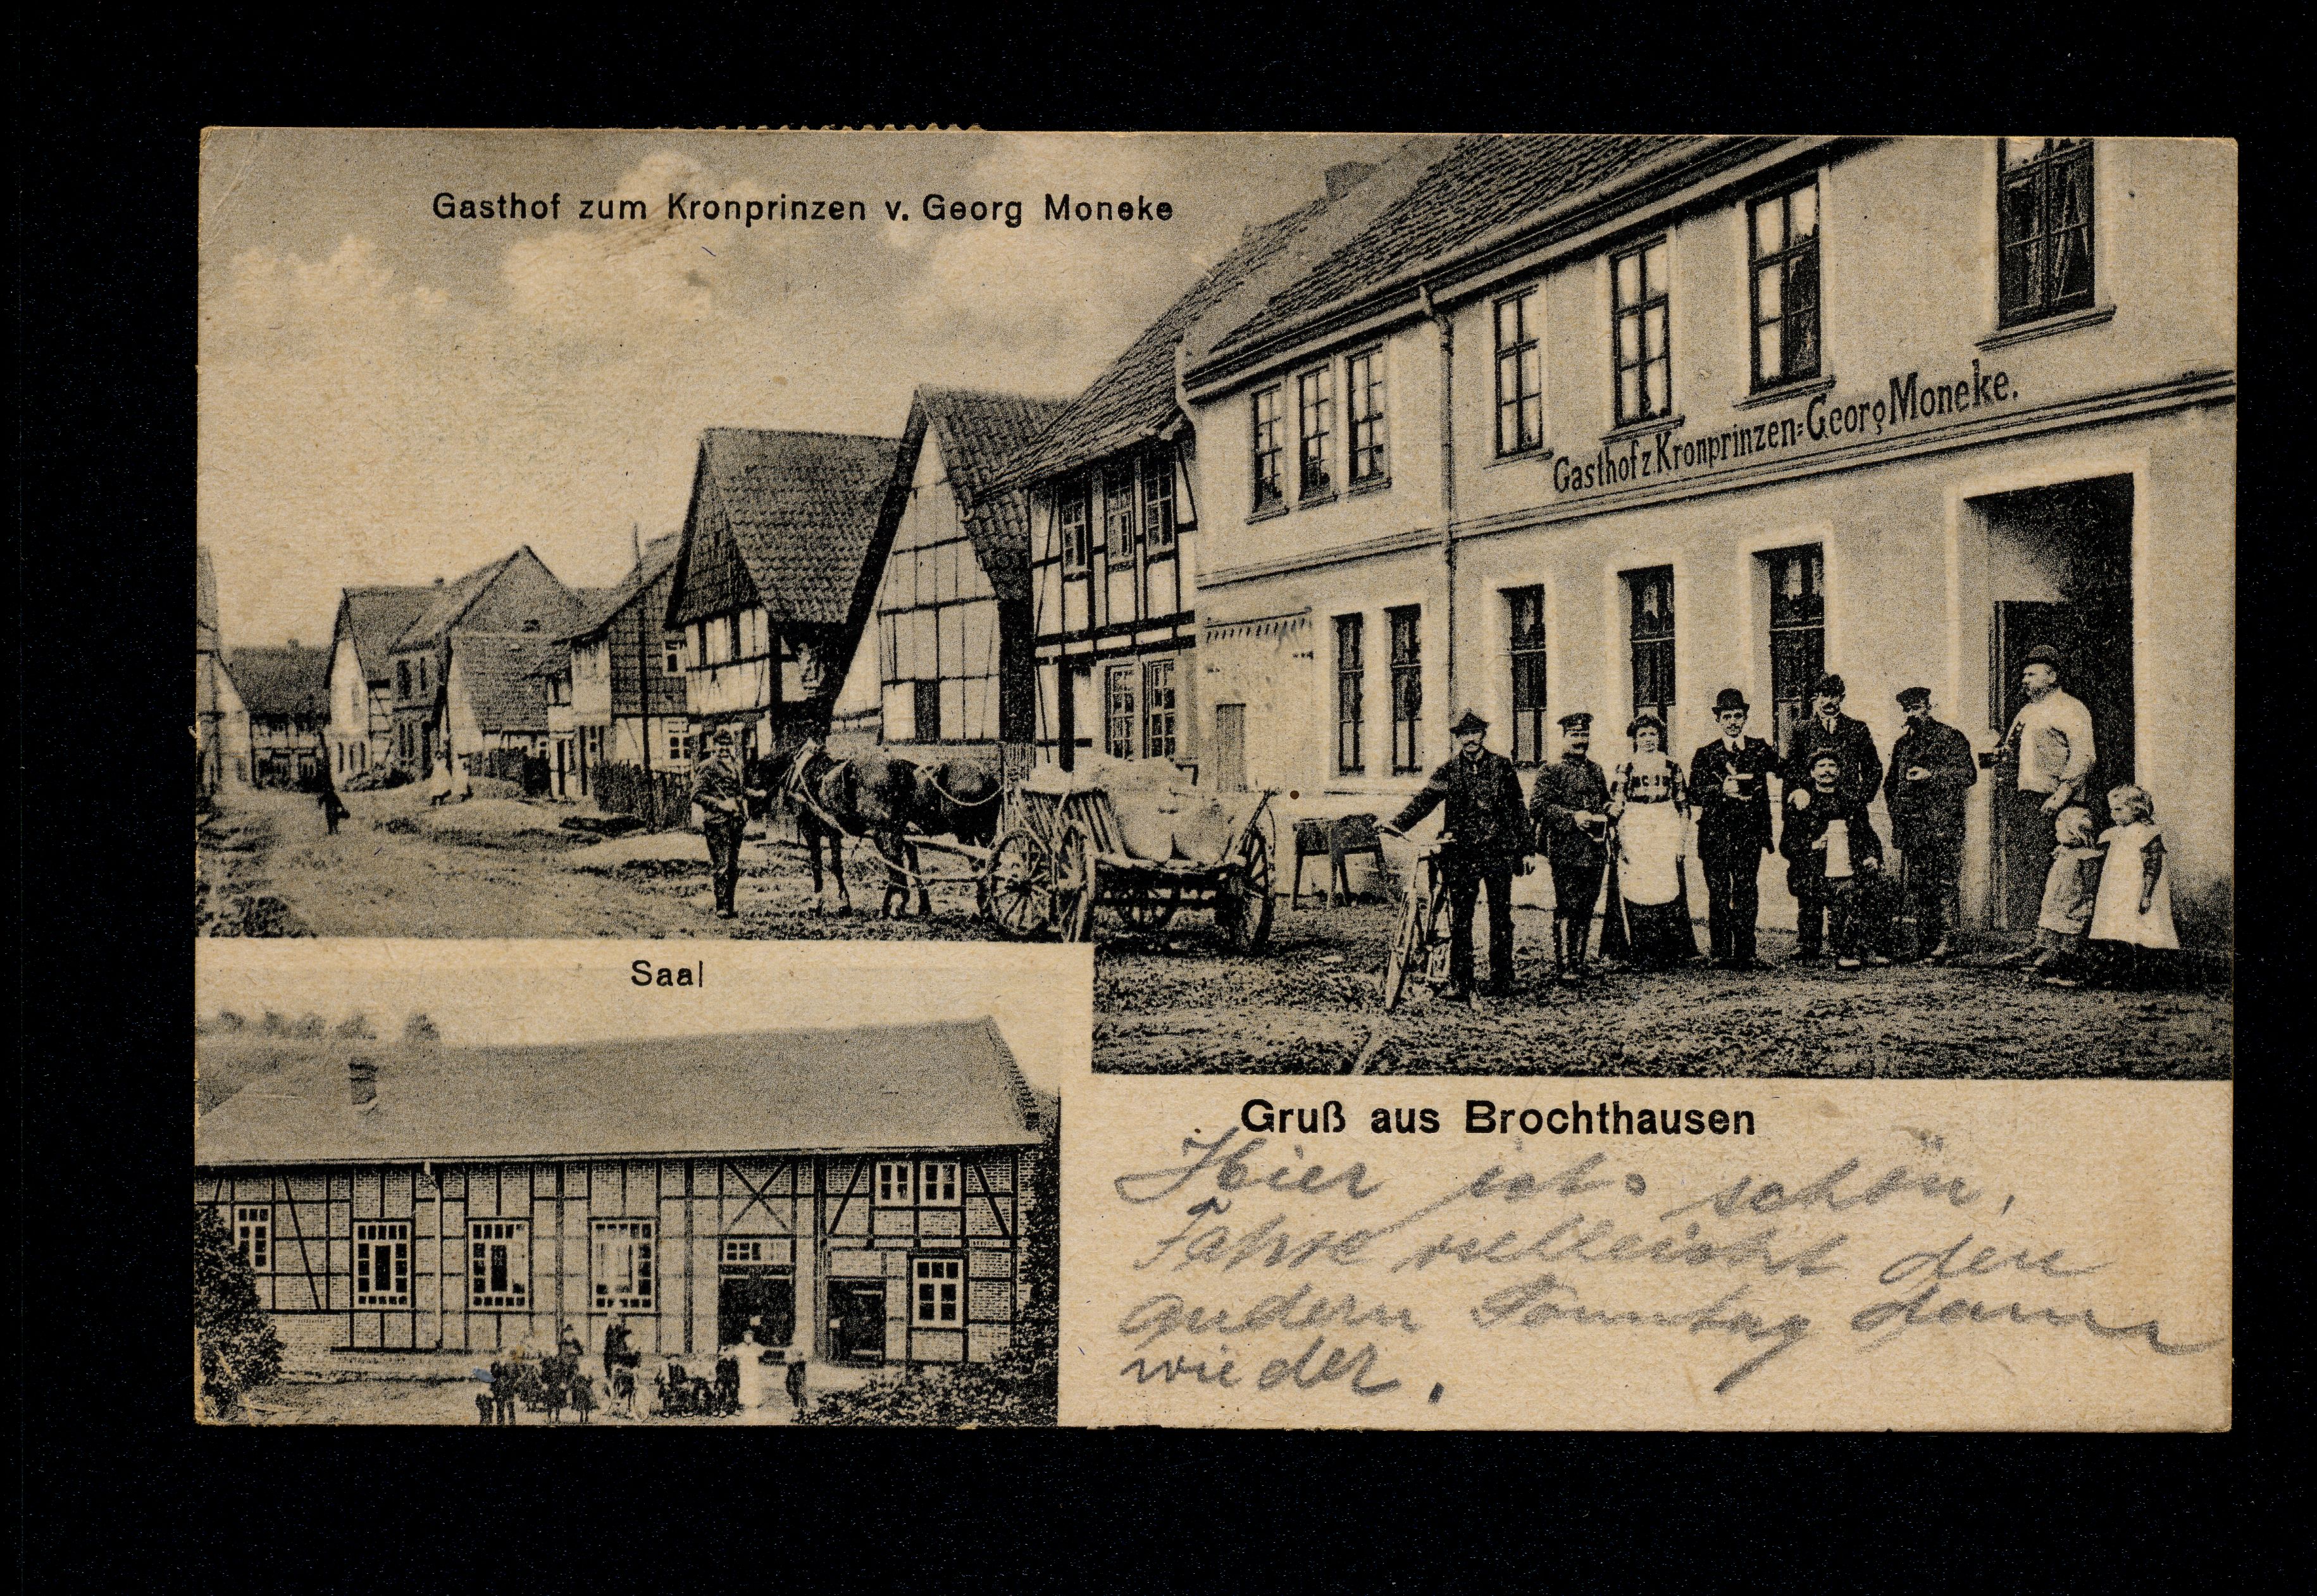 Gasthof zum Kronprinzen v. Georg Moneke
Gasthof z. Kronprinzen=Georg Moneke.
Saal
Gruß aus Brochthausen
Hier ists schön,
Fahre vielleicht den
andern Sonntag dann
wieder.